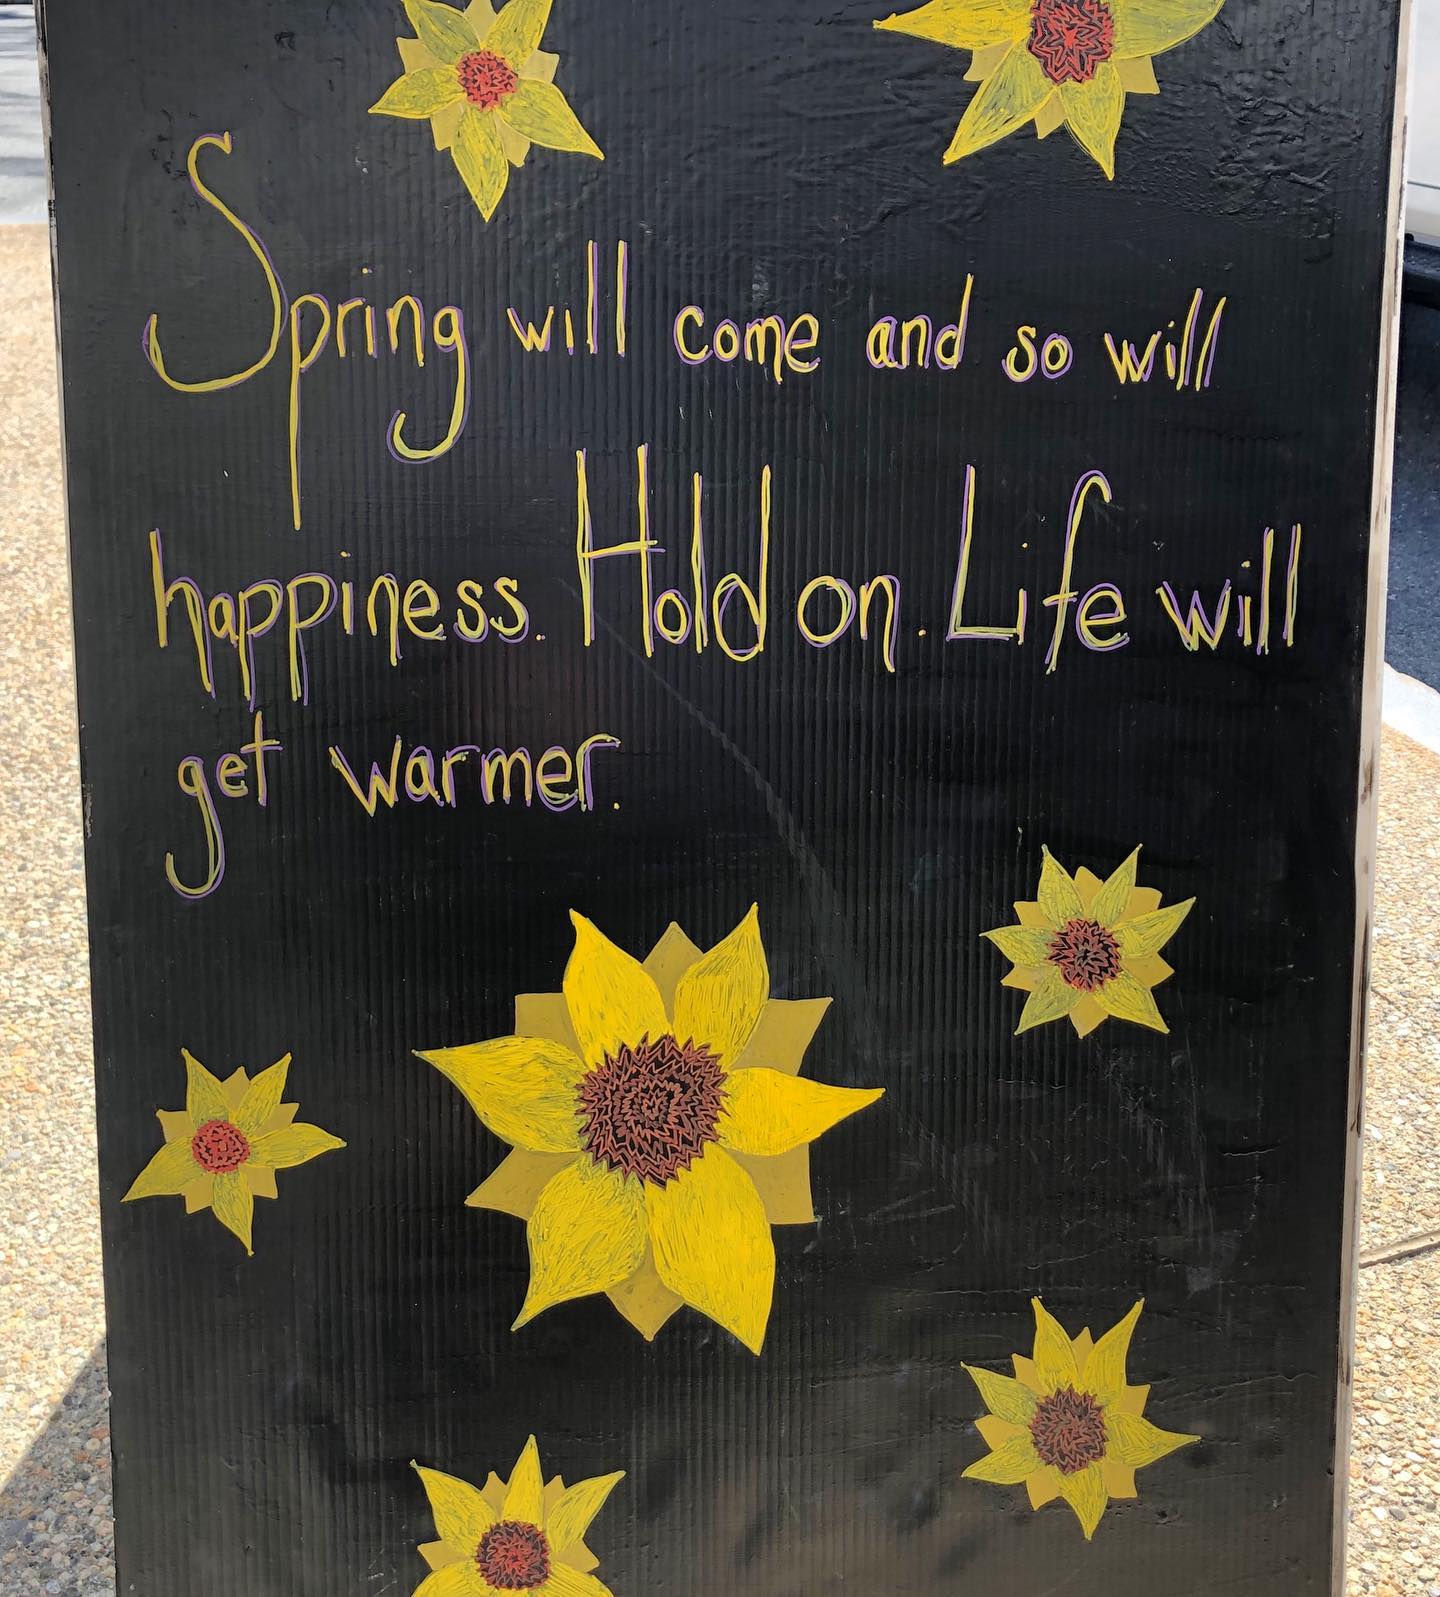 Spring will come and so will
happiness. Hold on. Life will
get warmer.